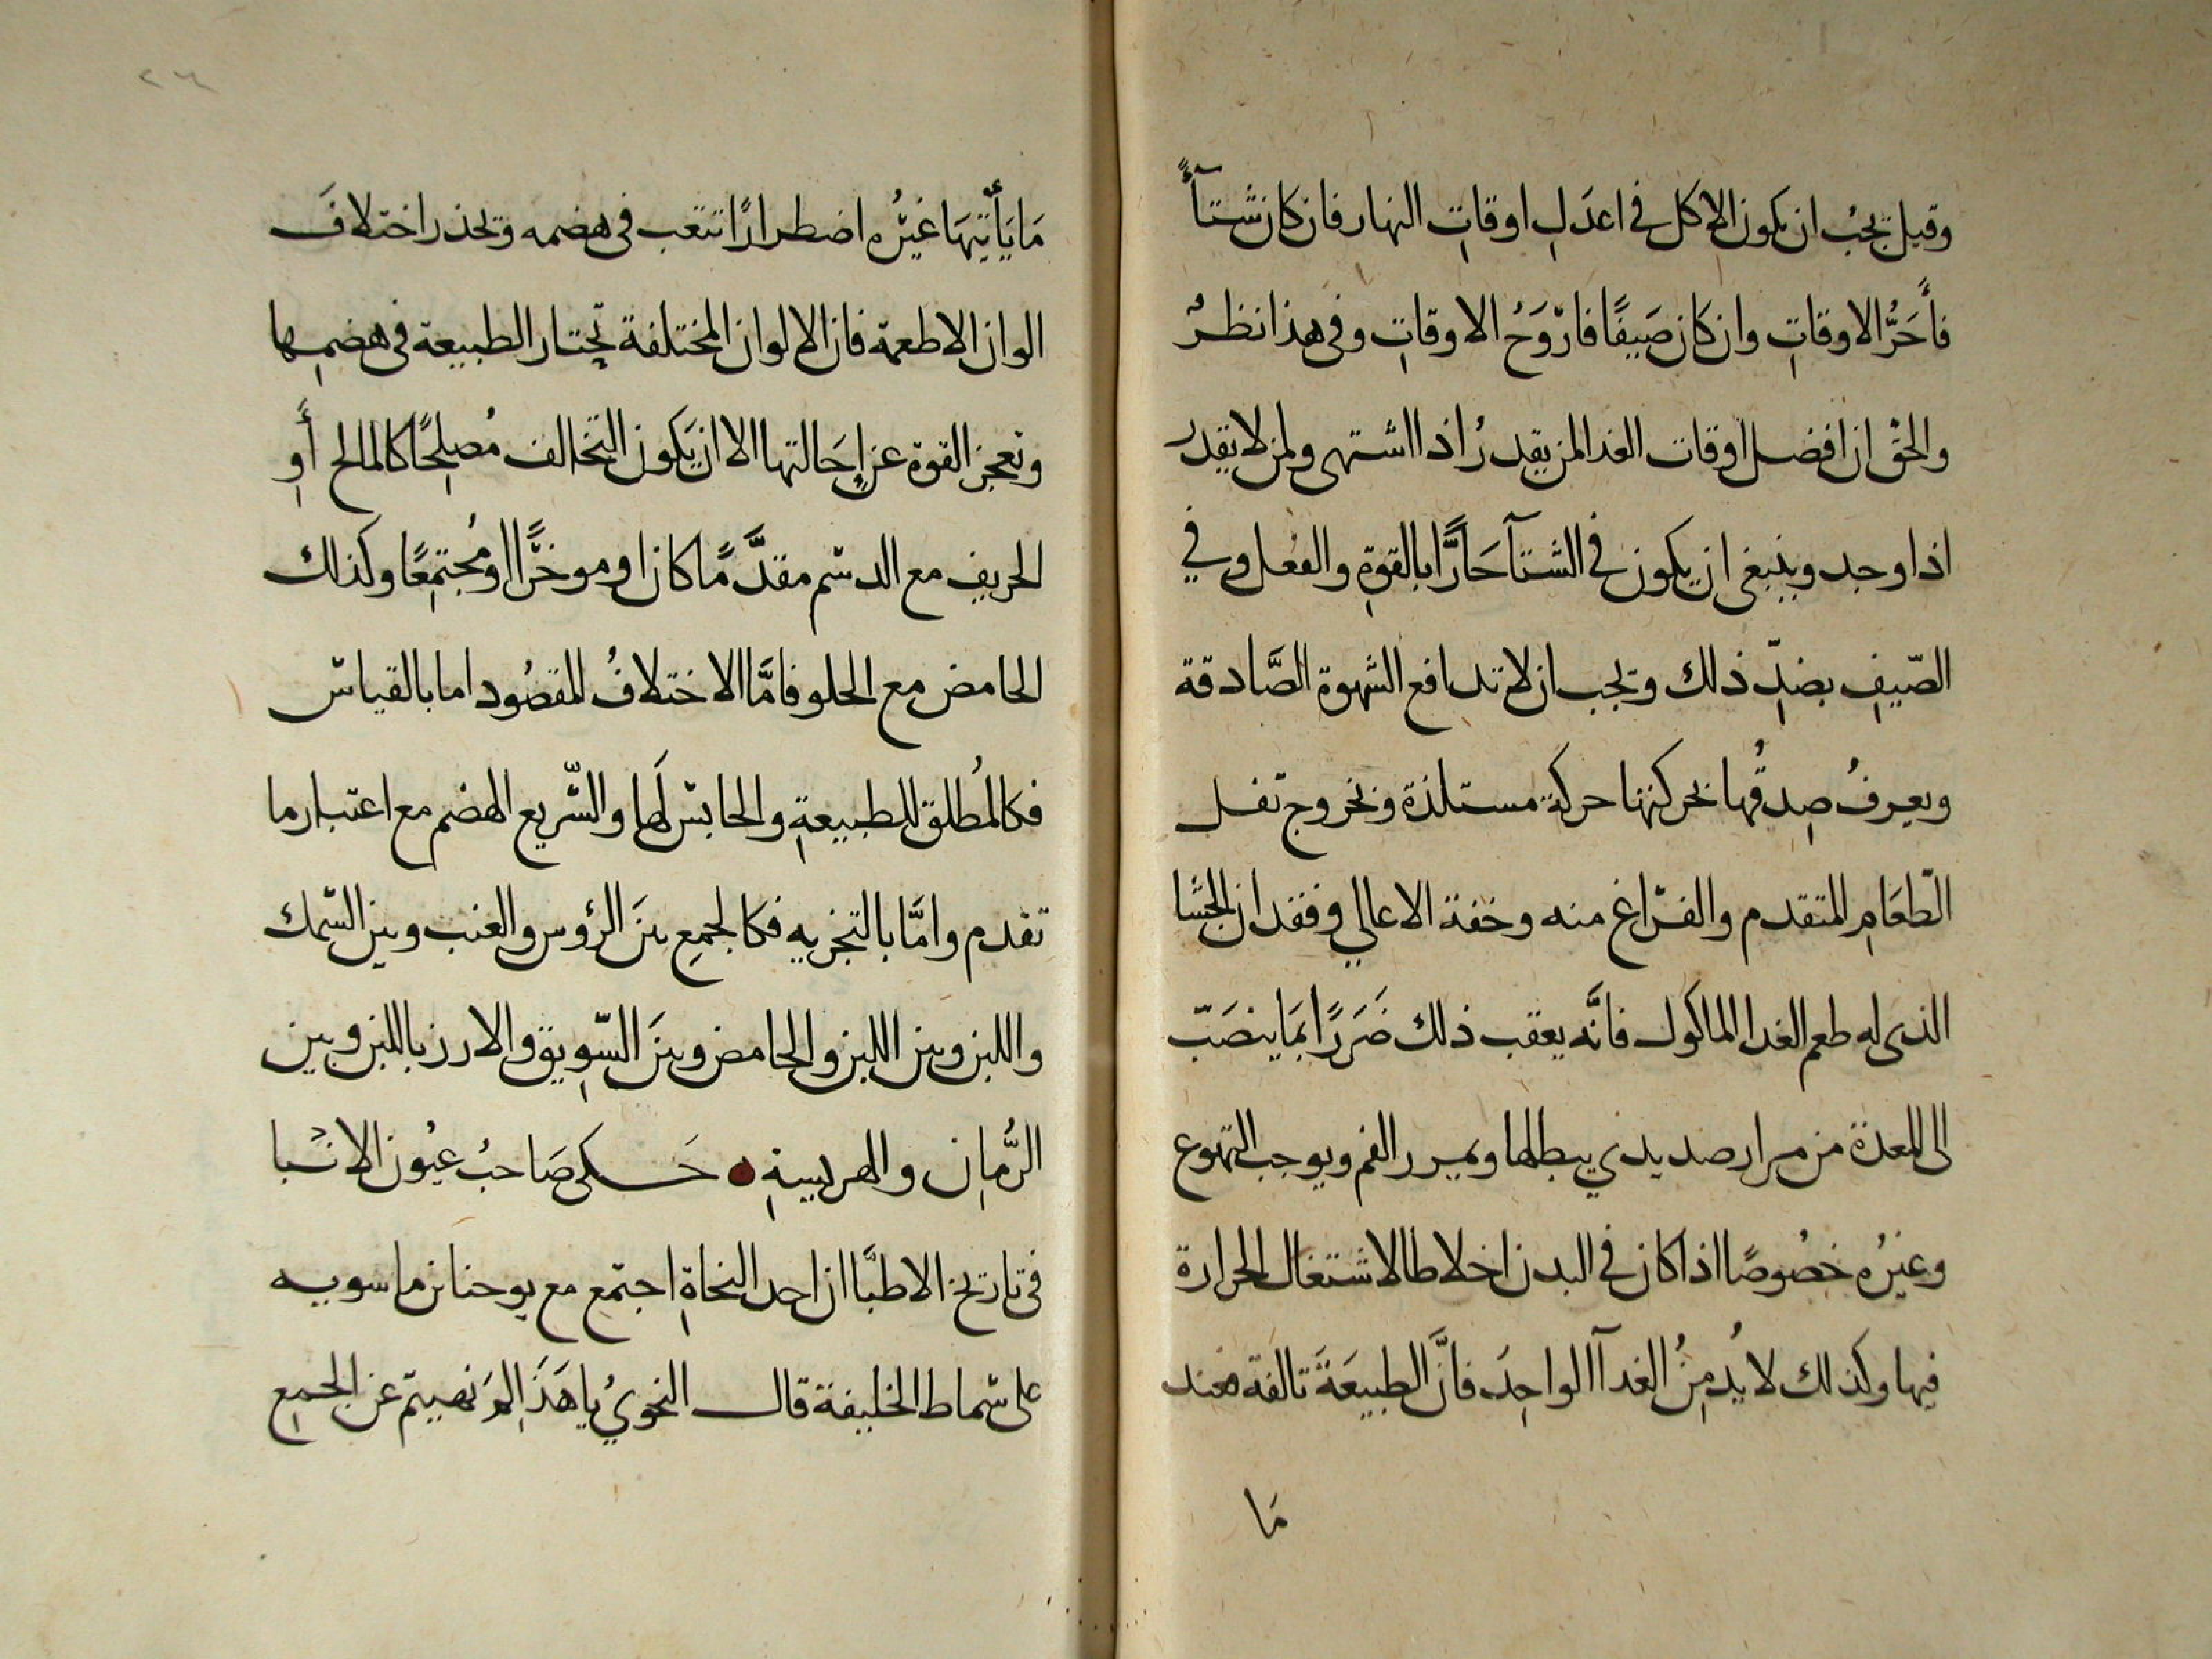 وقيل يجبُ ان يكون الاكل في اعدَلِ اوقاتِ النهار فان كان شتآءً
فأَحَرُّ الاوقاتِ وان كان صَيفًا فارْوَحُ الاوقاتِ وفي هذا نظرٌ
والحقُ ان افضل اوقات الغدا لمن يقدرُ اذا اشتهى ولمن لا يقدر
اذا وجد وينبغى ان يكون في الشتآ حَارًّا بالقوةِ والفعل وفي
الصّيفِ بضدِّ ذلك ويجب ان لا تدافع الشهوة الصَّادقة
ويعرفُ صِدقُها بحركتها حركة مستلذة وبخروج ثفل
الطّعَامِ المتقدم والفراغ منه وخفة الاعالي وفقدان الجشا
الذى له طعم الغدا الماكول فانَّه يعقب ذلك ضَرَرًا بمَا ينصَبّ
الى المعدة من مرار صديدي يبطلها ويمرر الفم ويوجب التهوع
وغيرُه خصُوصًا اذا كان في البدن اخلاطا لاشتغال الحرارة
فيها وكذلك لا بُد مِنُ الغدآ الواحِدَ فانَّ الطبيعَةَ تالفه فعند
مَا
٢٦
مَا يَأْتيهَا غيرُه اضطرارًا تتعب في هضمه وتحذر اختلافَ
الوان الاطعمة فان الالوان المختلفة تحتار الطبيعة في هضمِها
وتعجز القوة عن اِحَالتها الا ان يَكون التخالف مُصلِحًا كالمالح أَوِ
الحريفِ مع الدسم مقدَّمًا كان او موخرًّا او مُجتمِعًا وكذلك
الحامض مع الحلو فامَّا الاختلافُ المقصُود اما بالقياس
فكالمُطلق للطبيعةِ والحابس لَها والسّريع الهضم مع اعتبار ما
تقدم وامَّا بالتجربه فكالجمعِ بينَ الرؤس والعنب وبين السّمك
واللبن وبين اللبن والحامض وبينَ السّوِيق والارز باللبن وبين
الرُّمانِ والهريسةِ حَكى صَاحبُ عيُون الانبا
في تاريخ الاطبَّا ان احد النحاةِ اجتمع مع يوحنا بن ماسويه
على سماط الخليفة قال النحويُ يا هَذَا لِمَ نهيتم عن الجمعِ